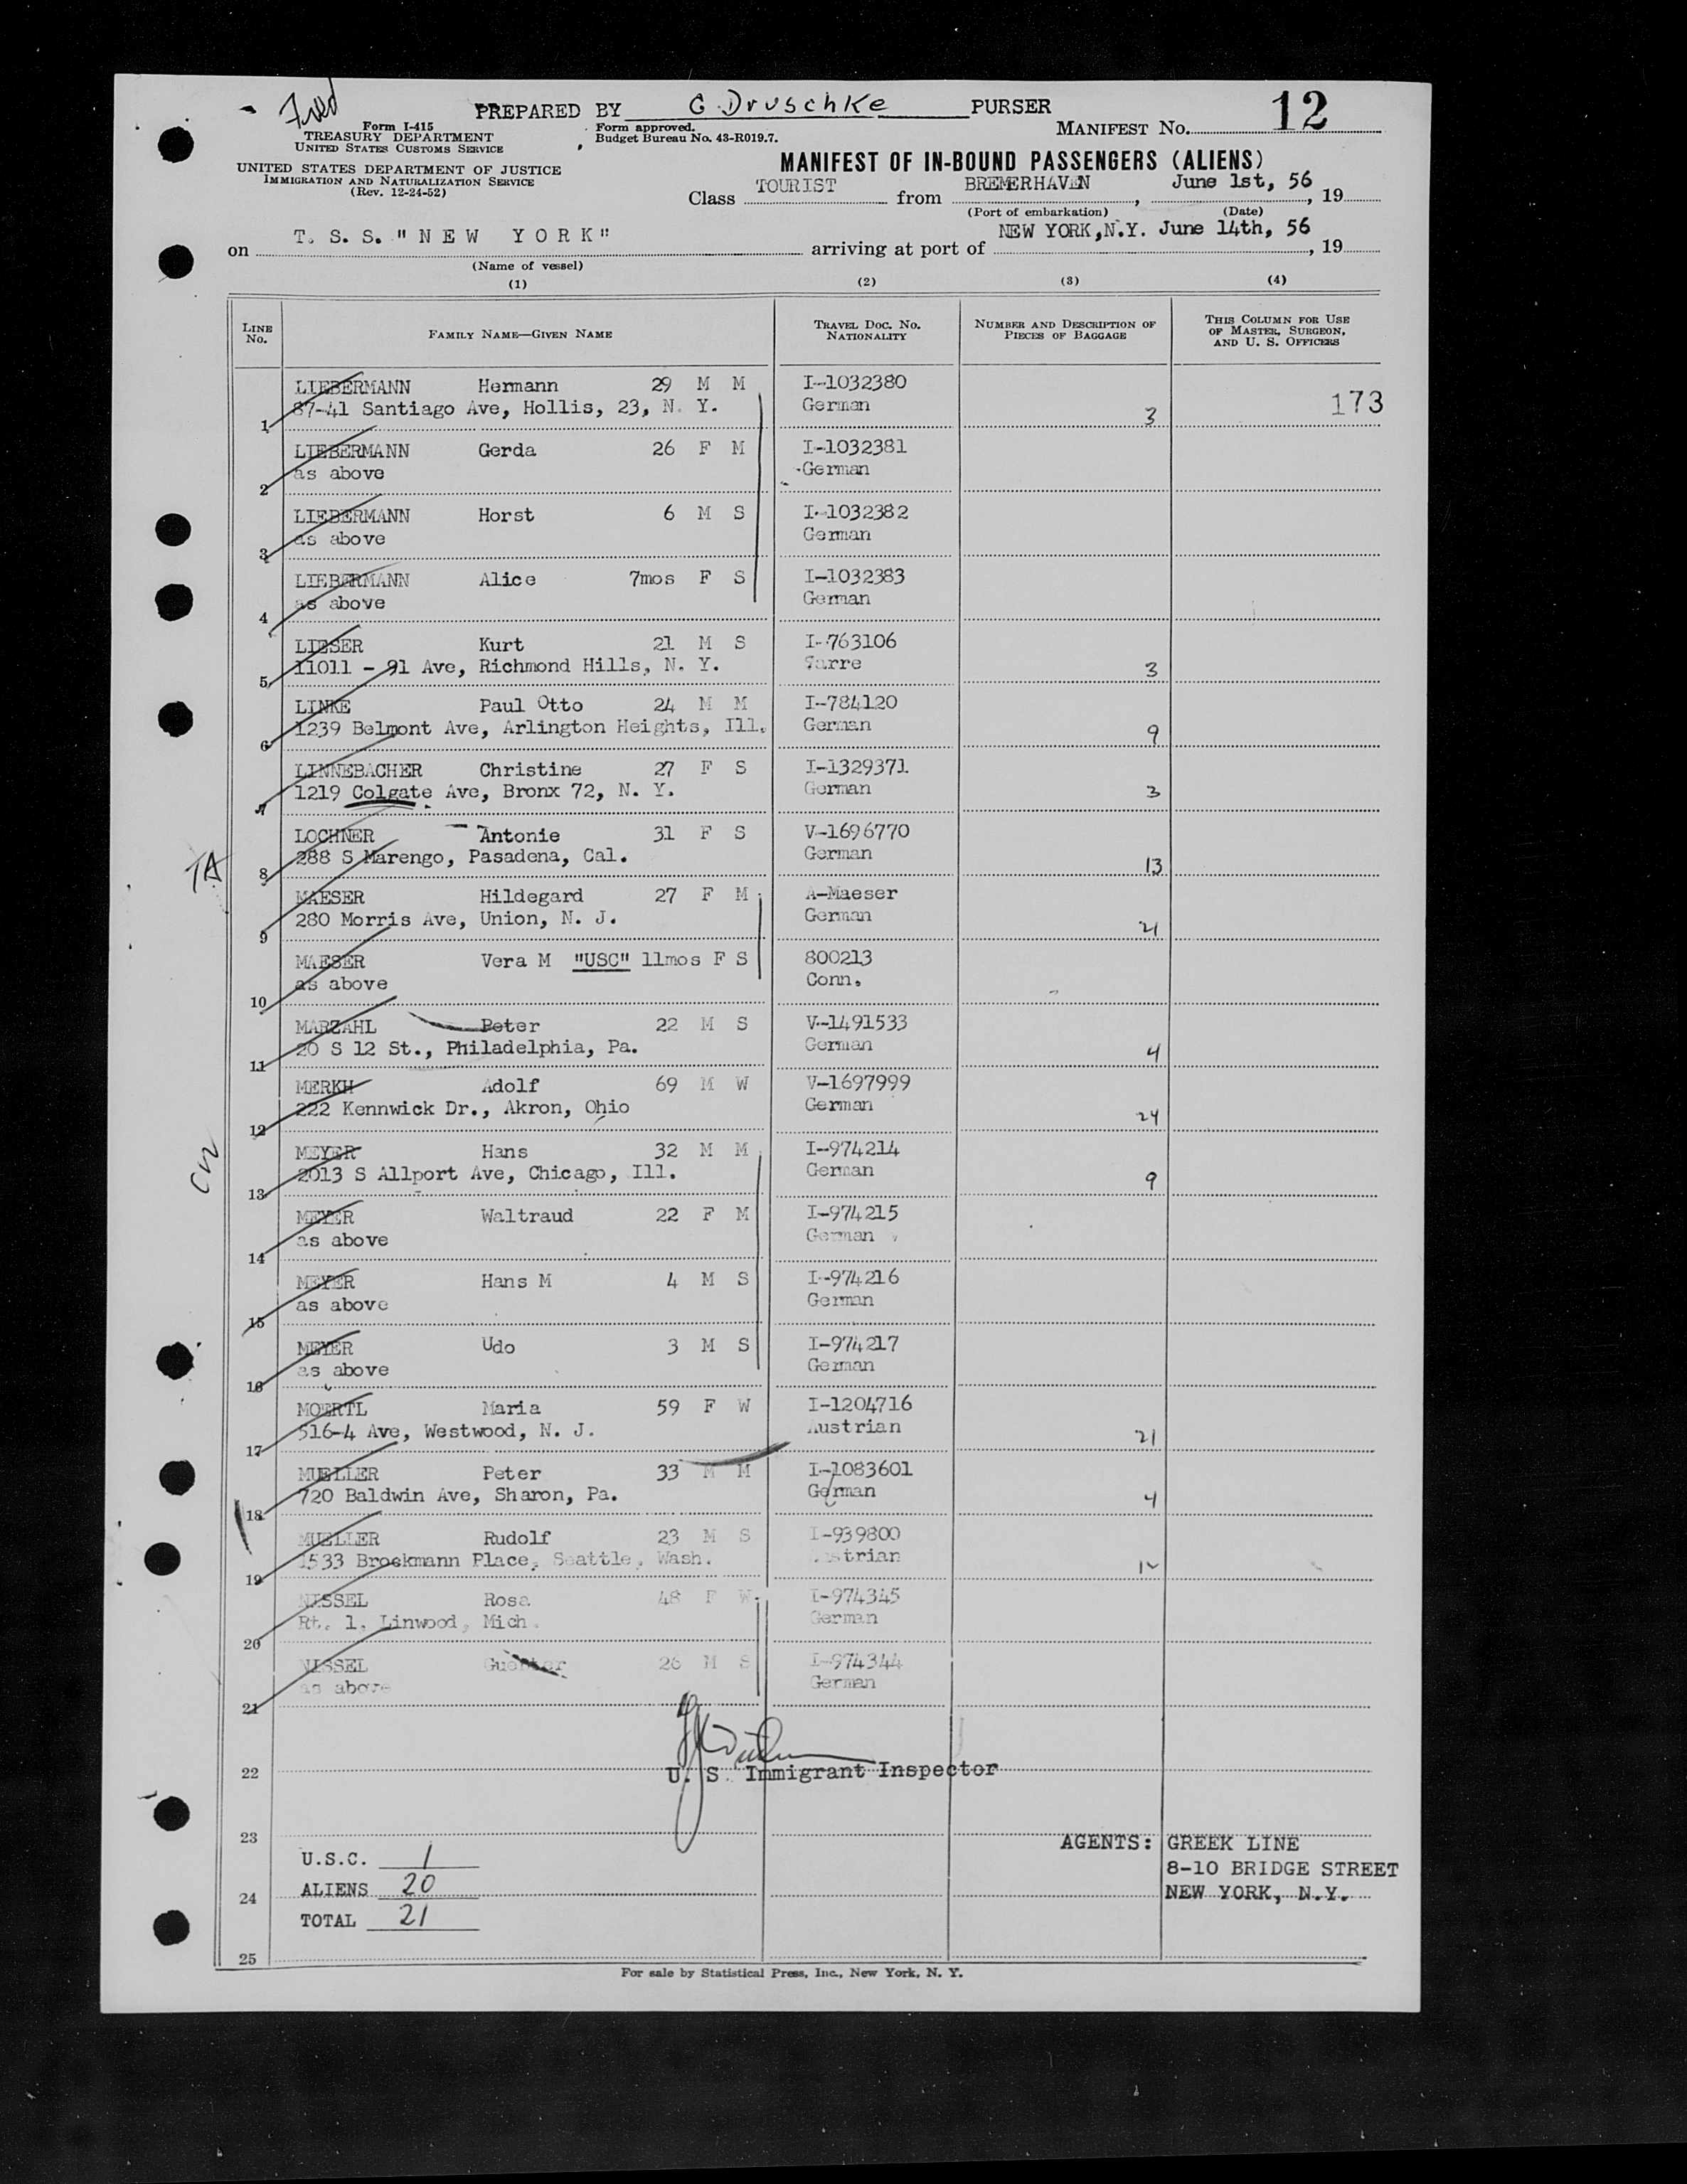 Fred
PREPARED BY G Druschke PURSER
12
Form I-415
TREASURY DEPARTMENT
UNITED STATES CUSTOMS SERVICE
Form approved.
Budget Bureau No. 43-R019.7.
MANIFEST No.
UNITED STATES DEPARTMENT OF JUSTICE
IMMIGRATION AND NATURALIZATION SERVICE
(Rev. 12-24-52)
MANIFEST OF IN-BOUND PASSENGERS (ALIENS)
Class TOURIST from BREMERHAVEN, June 1st, 56, 19
(Port of embarkation) (Date)
on T. S. S. "NEW YORK" arriving at port of NEW YORK, N.Y. June 14th, 56, 19
(Name of vessel)
(1) (2) (3) (4)
LINE No. FAMILY NAME—GIVEN NAME TRAVEL DOC. No. NATIONALITY NUMBER AND DESCRIPTION OF PIECES OF BAGGAGE THIS COLUMN FOR USE OF MASTER, SURGEON, AND U. S. OFFICERS
LIEBERMANN Hermann 29 M M I-1032380
87-41 Santiago Ave, Hollis, 23, N. Y. German 173
1 3
LIEBERMANN Gerda 26 F M I-1032381
as above German
2
LIEBERMANN Horst 6 M S I-1032382
as above German
3
LIEBERMANN Alice 7mos F S I-1032383
as above German
4
LIESER Kurt 21 M S I-763106
11011 - 91 Ave, Richmond Hills, N. Y. Sarre
5 3
LINKE Paul Otto 24 M M I-784120
1239 Belmont Ave, Arlington Heights, Ill. German
6 9
LINNEBACHER Christine 27 F S I-1329371
1219 Colgate Ave, Bronx 72, N. Y. German 3
7
LOCHNER Antonie 31 F S V-1696770
288 S Marengo, Pasadena, Cal. German
TA 8 13
MAESER Hildegard 27 F M A-Maeser
280 Morris Ave, Union, N. J. German
9 21
MAESER Vera M "USC" 11mos F S 800213
as above Conn.
10
MARZAHL Peter 22 M S V-1491533
20 S 12 St., Philadelphia, Pa. German
11 4
MERKH Adolf 69 M W V-1697999
222 Kennwick Dr., Akron, Ohio German
12 24
MEYER Hans 32 M M I-974214
2013 S Allport Ave, Chicago, Ill. German
13 9
MEYER Waltraud 22 F M I-974215
as above German
14
MEYER Hans M 4 M S I-974216
as above German
15
MEYER Udo 3 M S I-974217
as above German
16
MOERTL Maria 59 F W I-1204716
516-4 Ave, Westwood, N. J. Austrian
17 21
MUELLER Peter 33 M M I-1083601
720 Baldwin Ave, Sharon, Pa. German
18 4
MUELLER Rudolf 23 M S I-939800
1533 Brockmann Place, Seattle, Wash. Austrian
19
NISSEL Rosa 48 F W I-974345
Rt. 1, Linwood, Mich. German
20
NISSEL Guenter 26 M S I-974344
as above German
21
22 U. S. Immigrant Inspector
23
AGENTS: GREEK LINE
8-10 BRIDGE STREET
NEW YORK, N.Y.
U.S.C. 1
24 ALIENS 20
TOTAL 21
25
For sale by Statistical Press, Inc., New York, N. Y.